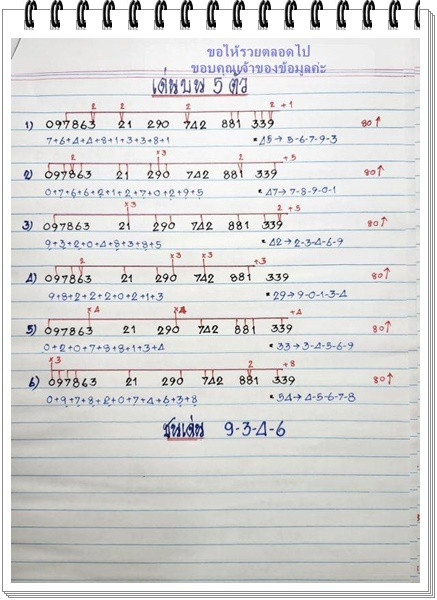 ขอให้รวยตลอดไป
ขอบคุณเจ้าของข้อมูลค่ะ
เด่นบน 5 ตัว
2 2 2 2 +1
1) 097863 21 290 742 881 339 80↑
7+6+4+4+8+1+3+3+8+1 * 45→5-6-7-9-3
2 2 +5
2) 097863 21 290 742 881 339 80↑
0+7+6+6+2+1+2+7+0+2+9+5 * 47→7-8-9-0-1
×3 2 +5
3) 097863 21 290 742 881 339 80↑
9+3+2+0+4+8+3+8+5 * 42→2-3-4-6-9
2 ×3 ×3 +3
4) 097863 21 290 742 881 339 80↑
9+8+2+2+2+0+2+1+3 * 29→9-0-1-3-4
×4 ×4 +4
5) 097863 21 290 742 881 339 80↑
0+2+0+7+8+8+1+3+4 * 33→3-4-5-6-9
×3 2 +8
6) 097863 21 290 742 881 339 80↑
0+9+7+8+2+0+7+4+6+3+8 * 54→4-5-6-7-8
ชนเด่น 9-3-4-6